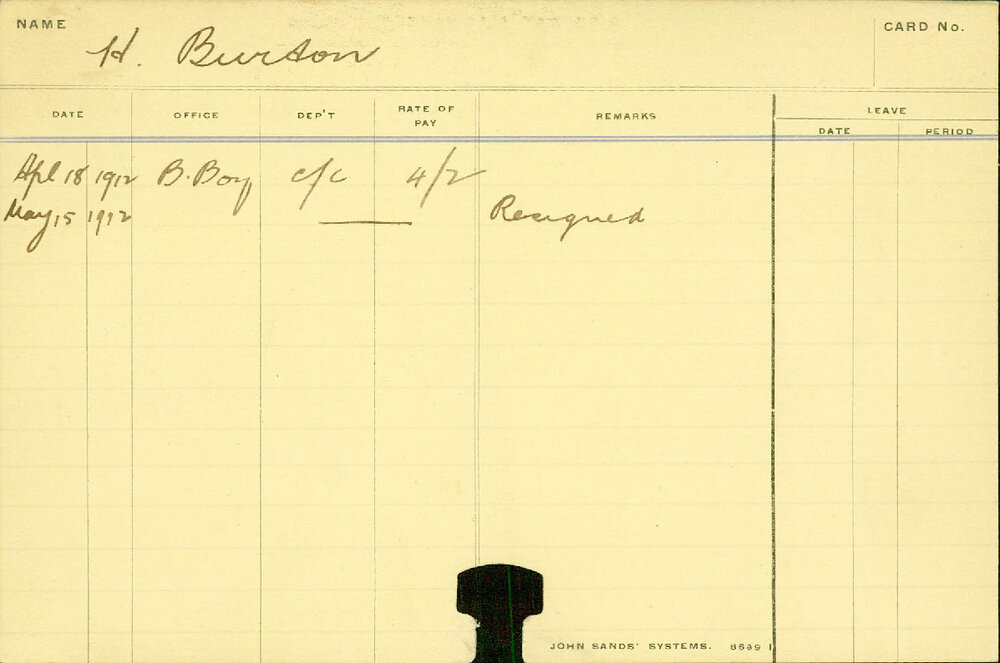 NAME
H. Burton
CARD No.
DATE OFFICE DEP'T RATE OF PAY REMARKS LEAVE
DATE PERIOD
Apl 18 1912 B. Boy c/c 4/2
May 15 1912 — Resigned
JOHN SANDS' SYSTEMS. 8689